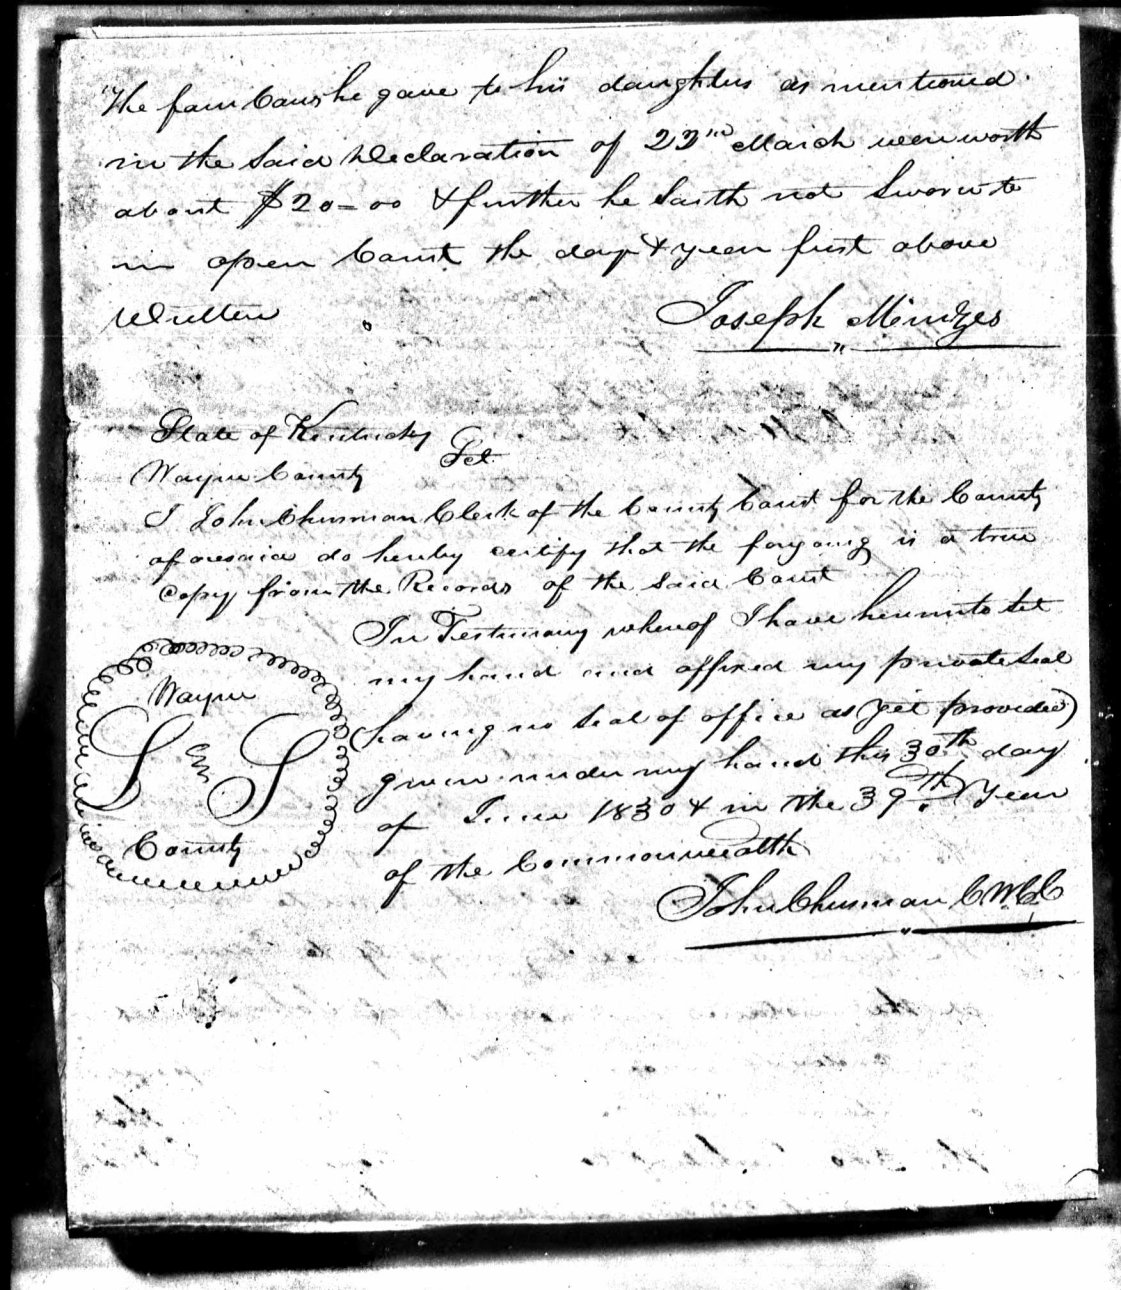 The four Cows he gave to his daughters as mentioned
in the said Declaration of 22nd March were worth
about $20-00 & further he saith not Sworn to
in open Court the day & year first above
Written
Joseph Mintzes
State of Kentucky
Wayne County Sct.
I John Chrisman Clerk of the County Court for the County
aforesaid do hereby certify that the forgoing is a true
Copy from the Records of the said Court
In Testimony whereof I have hereunto set
my hand and affixed my private seal
(having no seal of office as yet provided)
given under my hand this 30th day
of June 1830 & in the 39th Year
of the Commonwealth
Wayne
L S
County
John Chrisman C.W.C.C